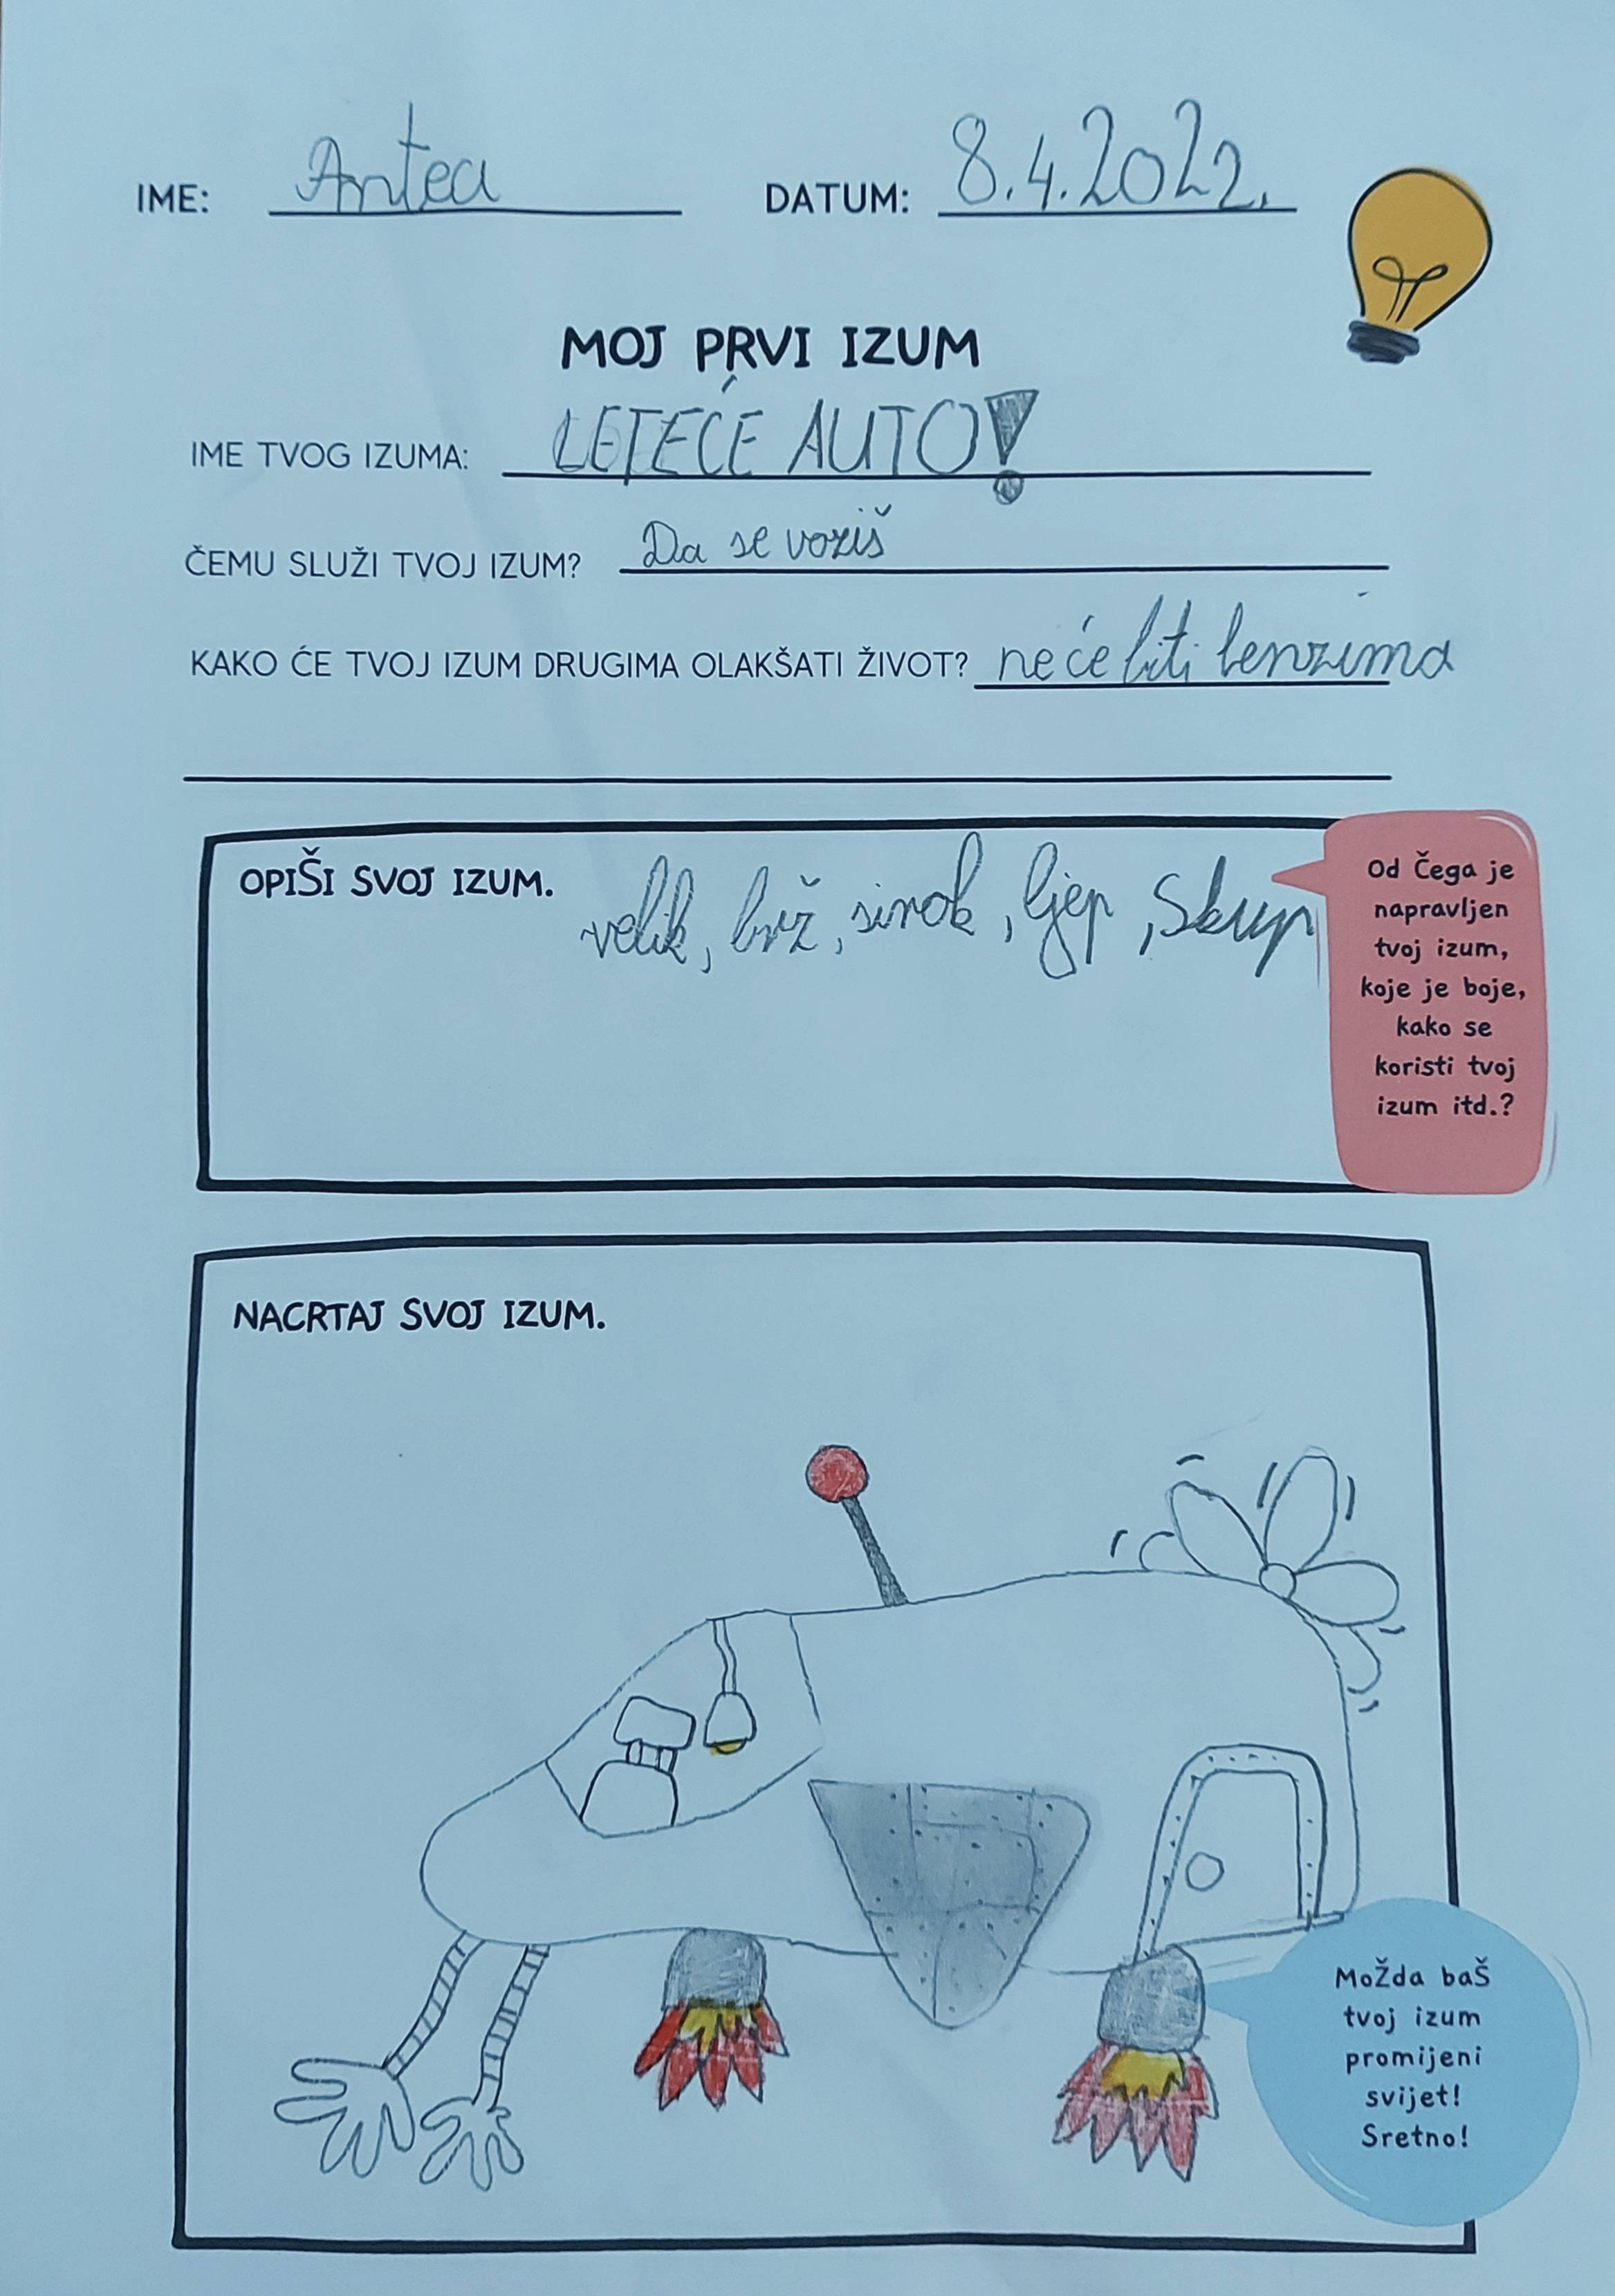 IME: Antea DATUM: 8.4.2022.
MOJ PRVI IZUM
IME TVOG IZUMA: LETEĆE AUTO!
ČEMU SLUŽI TVOJ IZUM? Da se voziš
KAKO ĆE TVOJ IZUM DRUGIMA OLAKŠATI ŽIVOT? neće biti benzina
OPIŠI SVOJ IZUM. velik, brz, širok, ljep, Skup
Od Čega je
napravljen
tvoj izum,
koje je boje,
kako se
koristi tvoj
izum itd.?
NACRTAJ SVOJ IZUM.
MoŽda baŠ
tvoj izum
promijeni
svijet!
Sretno!